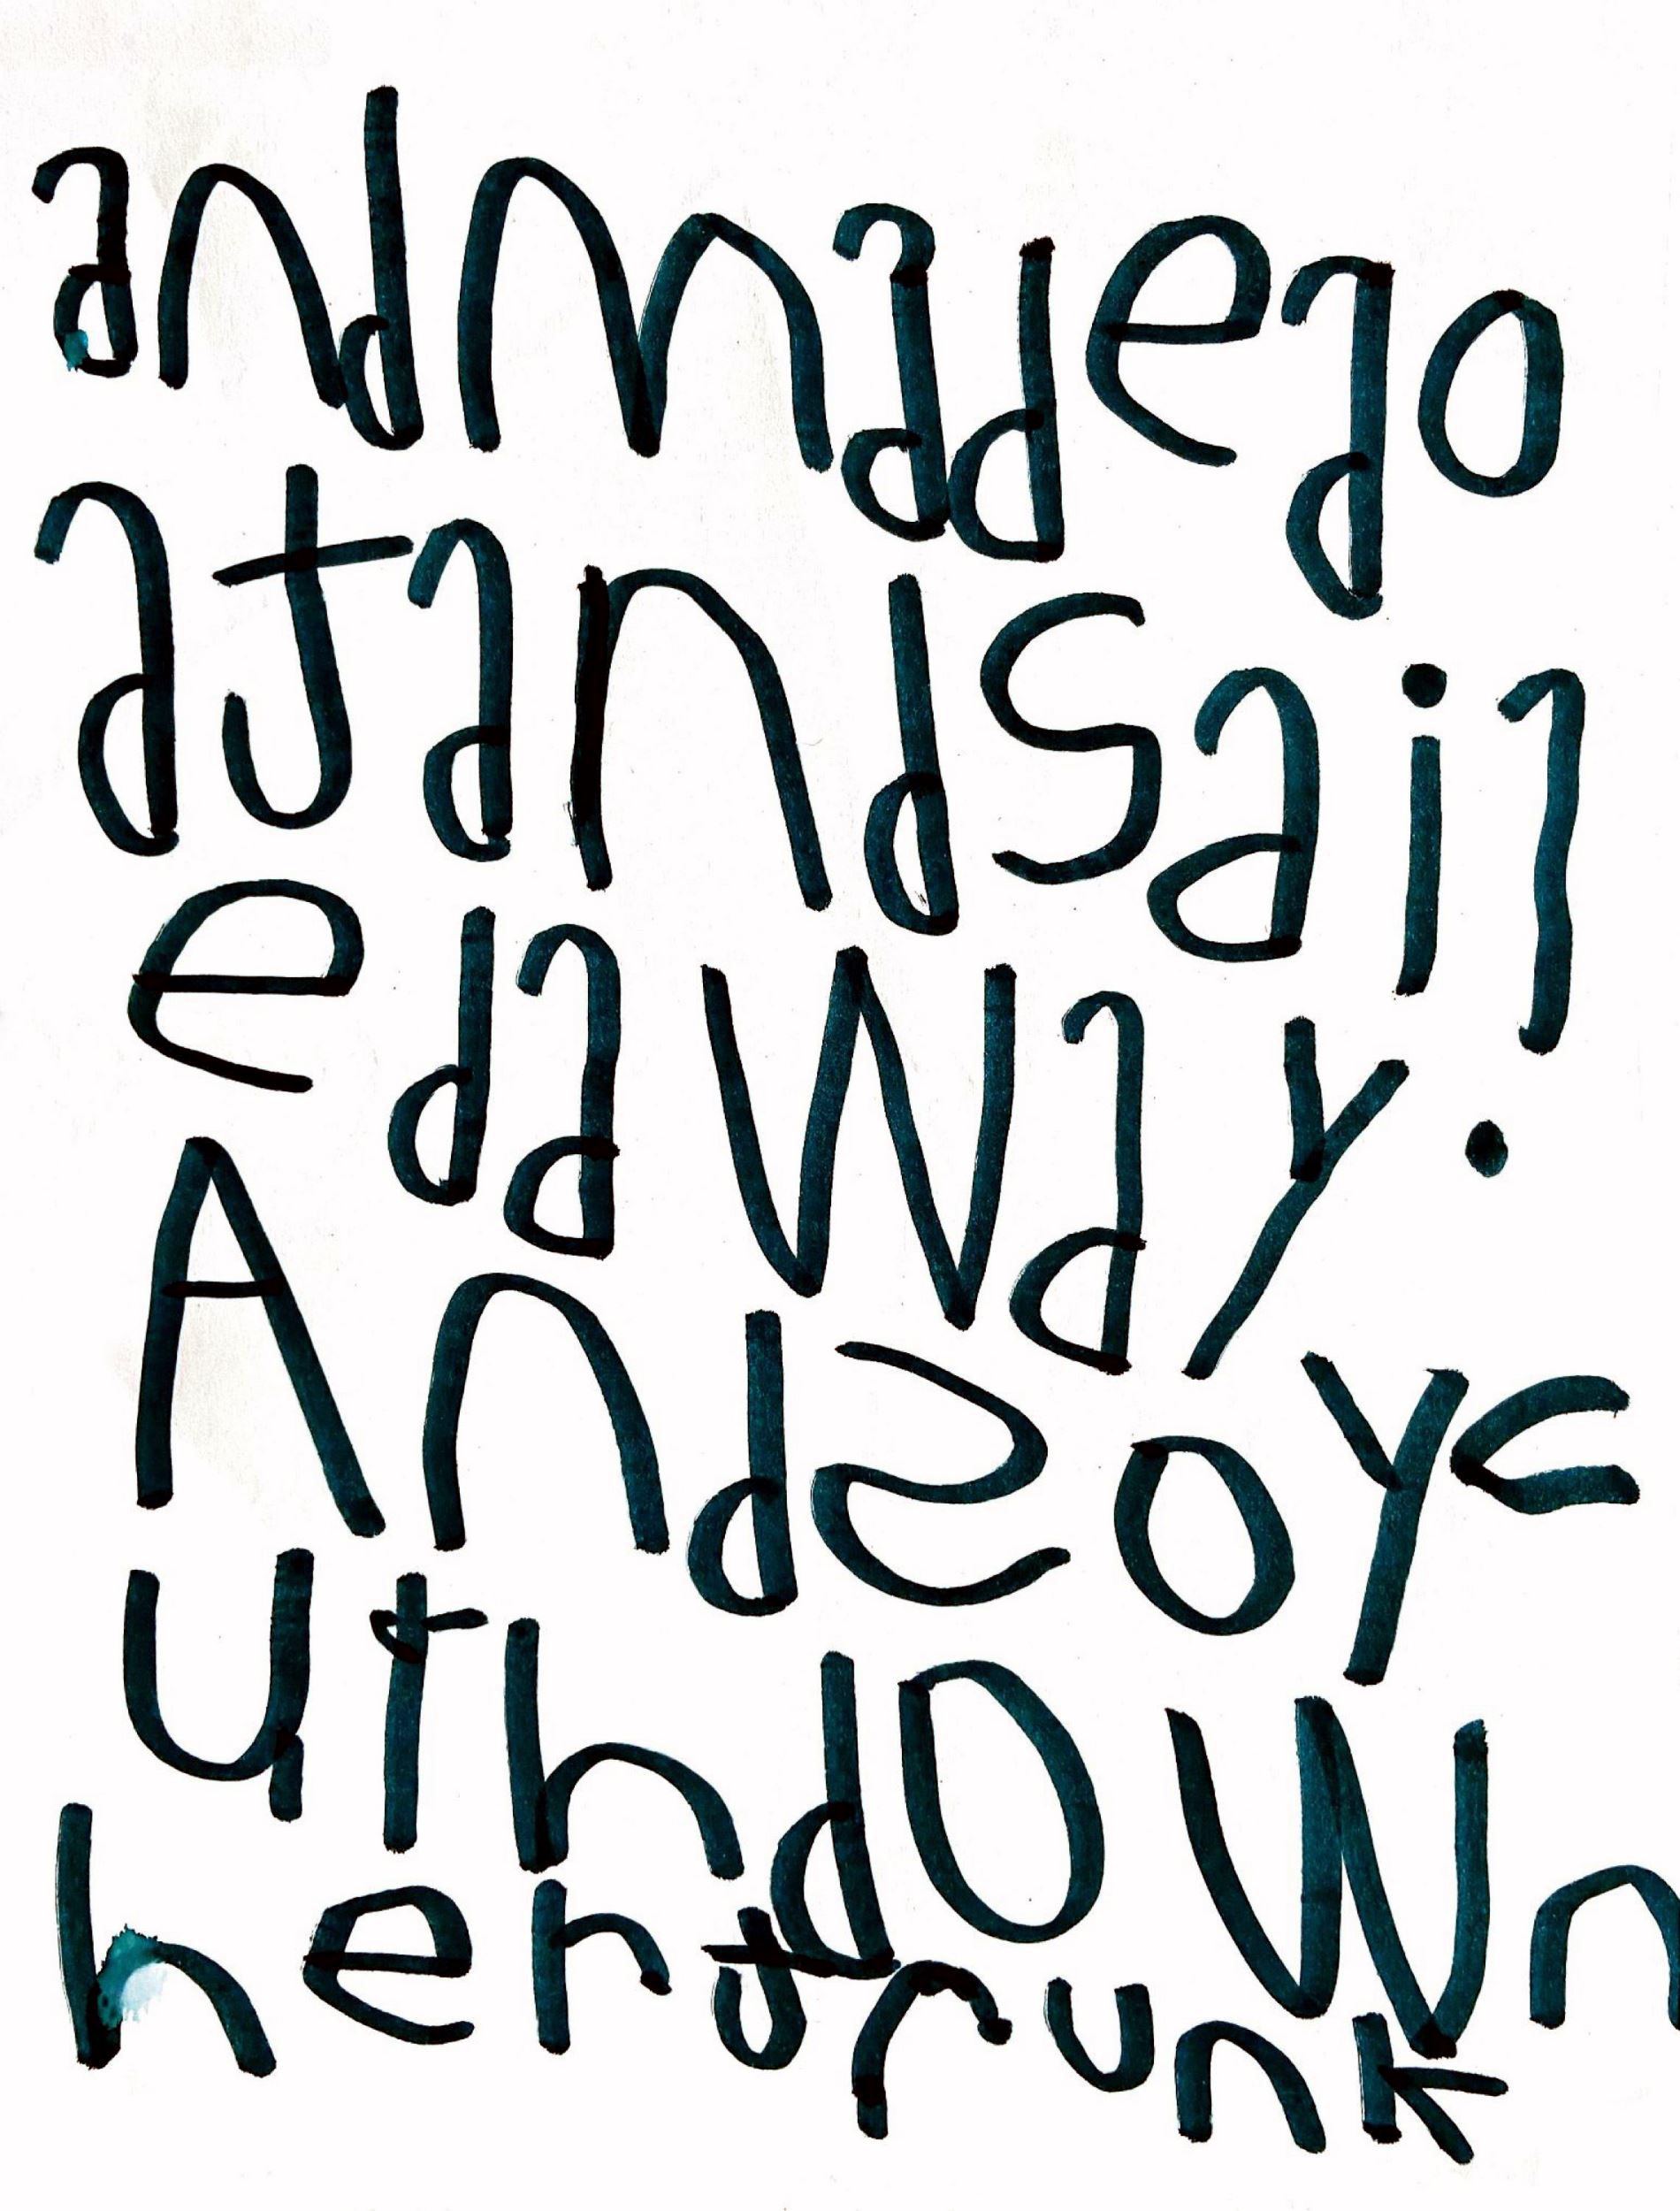 and made a go
a t and sail
ed a way.
And so y c
u t h down
her trunk